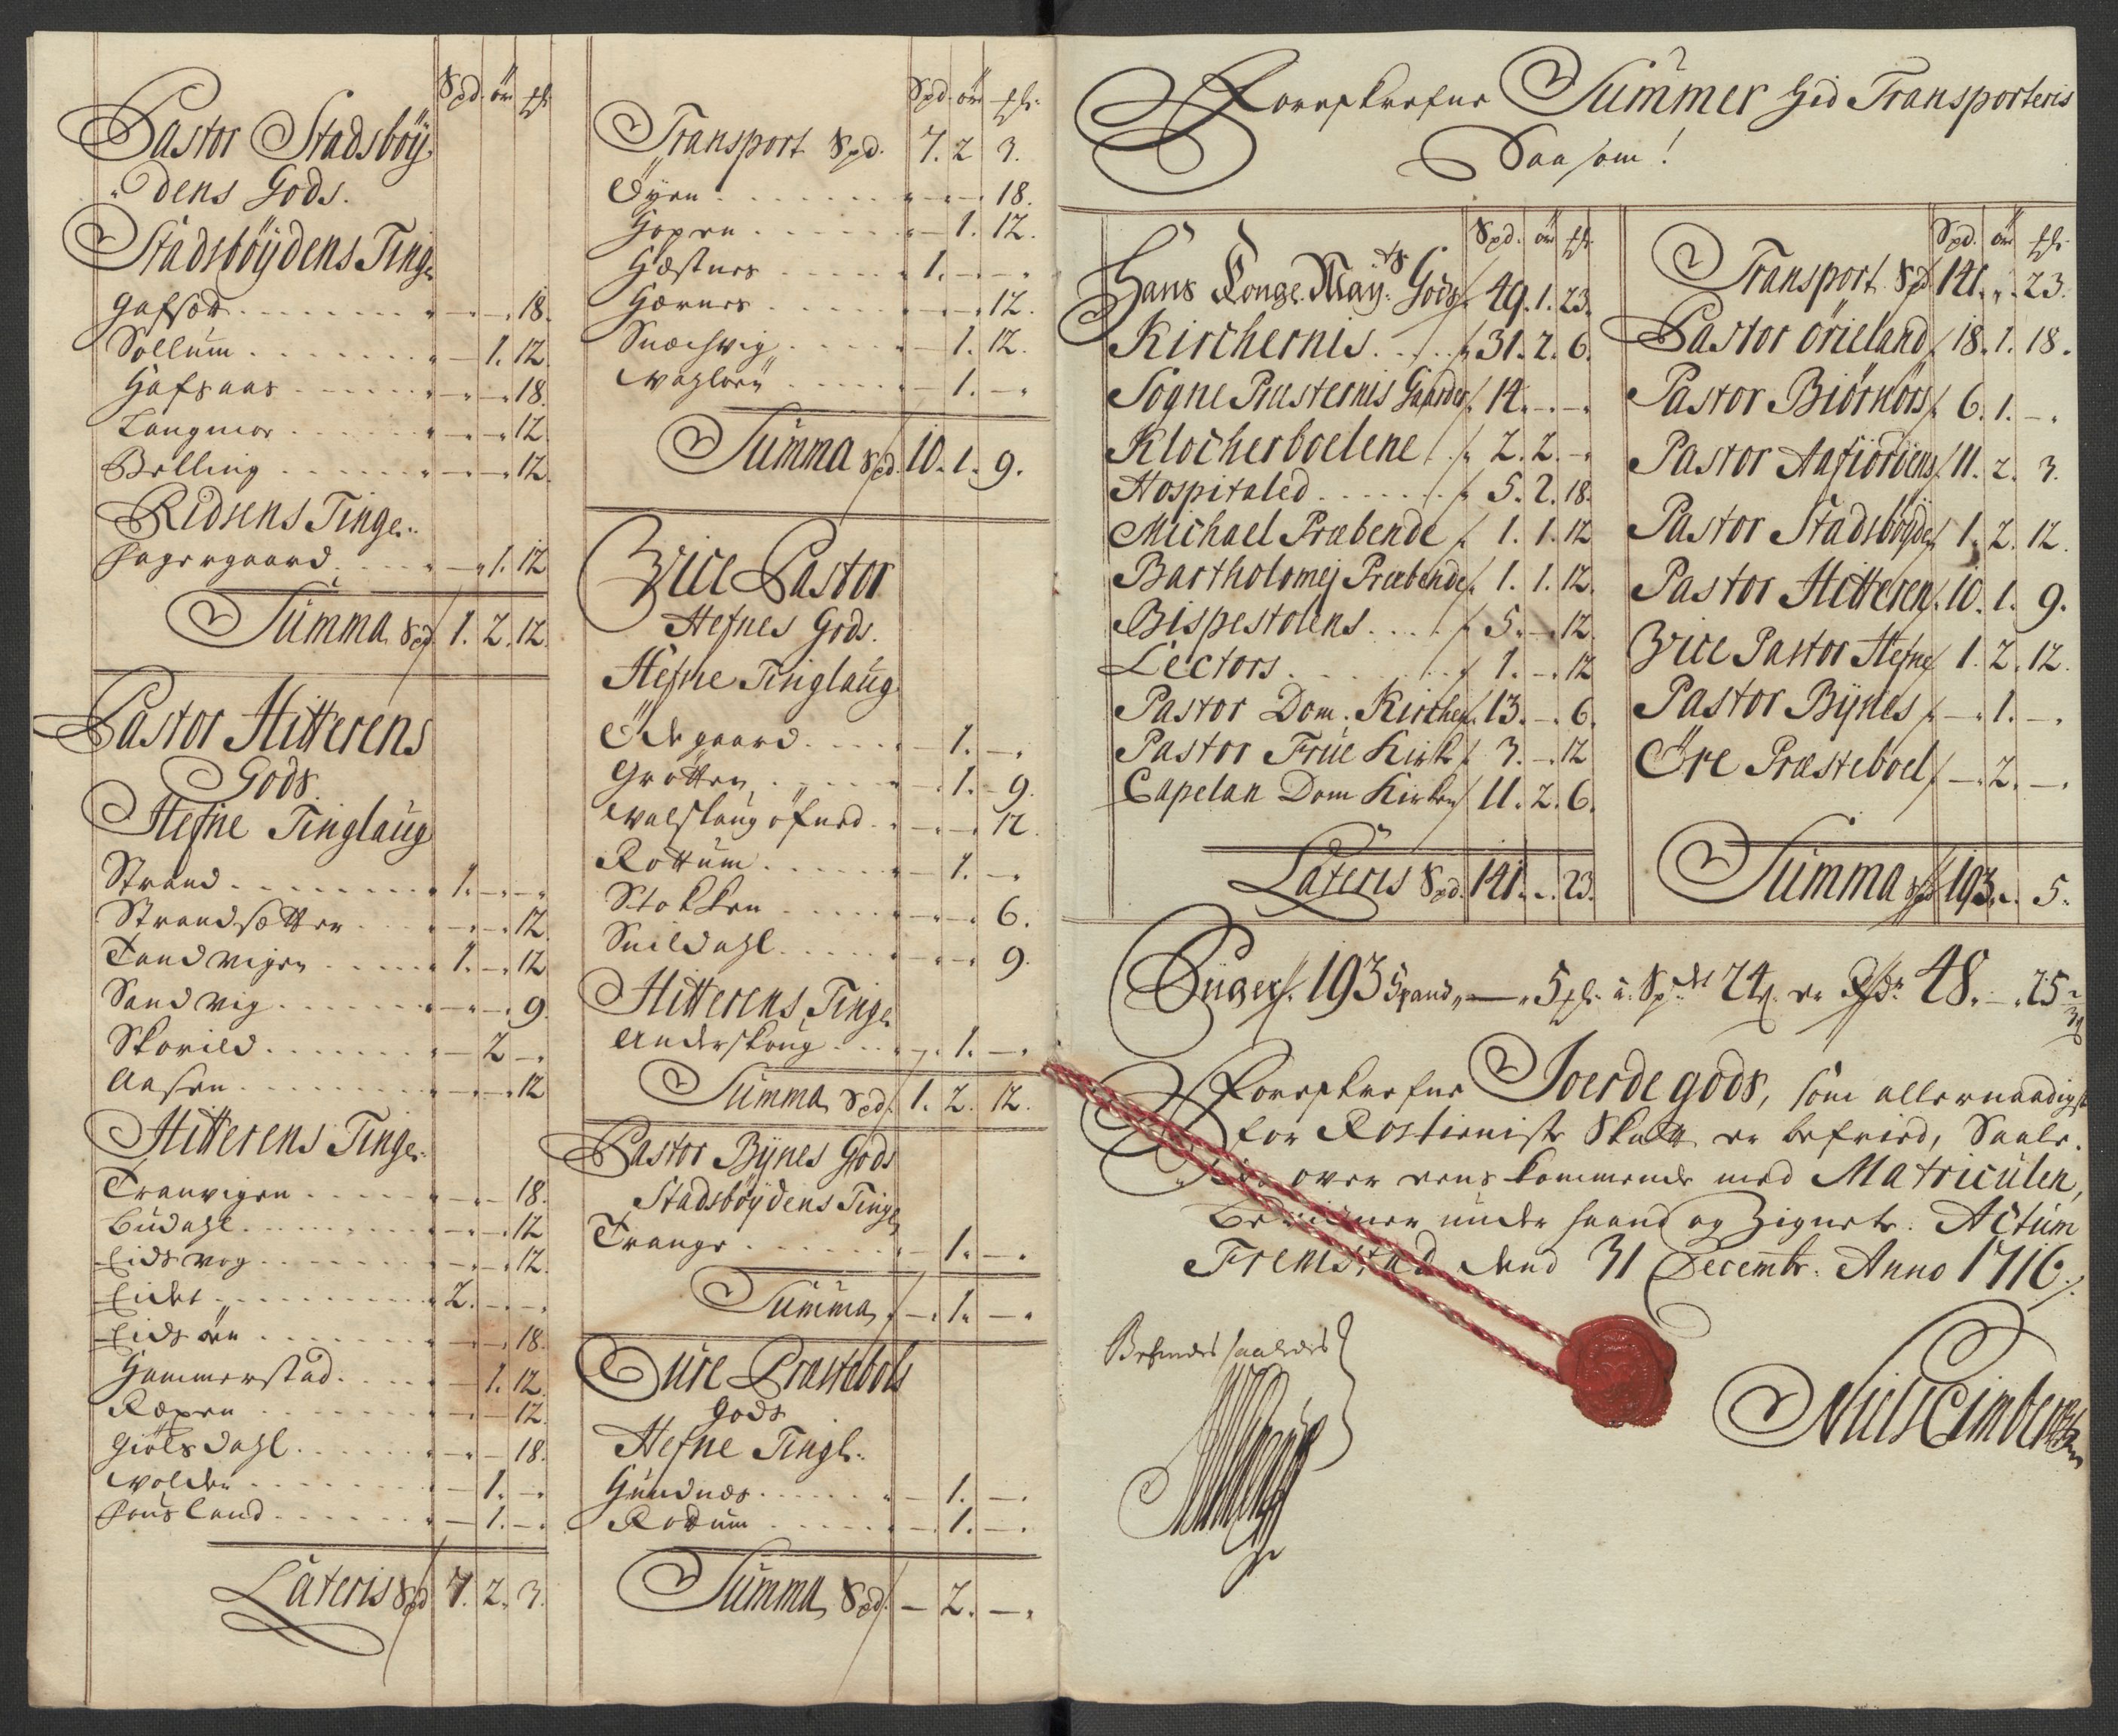 Spd. ör ßl.
Pastor Stadsböy
dens Gods.
Stadsböydens Tingl.
. . . . . " — " — " 18.
Sollum . . . . " — 1. 12.
Hafsaas . . . . " — " — " 18.
Langmor . . . . " — " — " 12.
Belling . . . . " — " — " 12.
Ridsens Tinge.
Fagergaard . . . . " — 1. 12
Summa Spd. 1. 2. 12.
Pastor Hitterens
Gods.
Hefne Tinglaug
Strand . . . . " 1. — " — "
Strandsætter . . . . " — " — " 12.
Tandvigen . . . . " 1. — " 12
Sandvig . . . . " — " — " 9.
Skorild . . . . " — 2 — "
Aasen . . . . " — " — " 12
Hitterens Tinge.
Tranvigen . . . . " — " — 18.
Budahl . . . . " — " — " 12
Eidsvog . . . . " — " — " 12.
Eidet . . . . " 2. — " — "
Eidsören . . . . " — " — " 18.
Hammerstad . . . . — 1. 12.
Ræpen . . . . " — " — 12.
Giölsdahl . . . . " — " — 18.
Volden . . . . — 1. — "
Fausland . . . . " — 1. — "
Lateris Spd 7. 2. 3.
Spd. ör ßl.
Transport Spd. 7. 2 3.
Öyen . . . . " — " — " 18.
Hopen . . . . " — 1. 12.
Hæstnes . . . . " 1. — " — "
Hærnes . . . . " — " — " 12.
. . . . " — 1. 12.
. . . . " — 1. — "
Summa Spd. 10. 1. 9.
Vice Pastor
Hefnes Gods.
Hefne Tinglaug
Ödegaard . . . . " — 1. — "
Grötten . . . . " — 1. — 9.
. . . . " — " — 12.
Rottum . . . . " — 1. — "
Stokken . . . . " — " — " 6.
Snildahl . . . . " — " — " 9.
Hitterens Tinge
Anderskoug . . . . 1. — "
Summa Spd. 1. 2. 12.
Pastor Bynes Gods
Stadsböydens Tingl.
Trange . . . . " — 1. — "
Summa — 1. — "
Öure Præstebols
Gods
Hefne Tingl.
Gundnæs . . . . " — 1. — "
Rodum . . . . " — 1. — "
Summa Spd. — 2. — "
Forreskrefne Summer hid Transporteris
Saasom!
Spd. ör ßl.
Hans Konge. Mayts Gods 49. 1. 23.
Kirchernis . . . 31. 2. 6.
Sogne Præsternis Gaarder 14. — " — "
Klocherboelene 2. 2. — "
Hospitaled . . . . 5. 2. 18.
Michael Præbende 1. 1. 12
Bartholomej Præbende 1. 1. 12.
Bispestolens . . . 5. — " 12.
Lectors . . . . 1. — " 12
Pastor Dom. Kirchen 13. — " 6.
Pastor Frue Kirk 3. — " 12
Capelan Dom Kirken 11. 2. 6.
Lateris Spd. 141. " — 23.
Spd. ör ßl.
Transport Spd 141. " — 23.
Pastor örieland 18. 1. 18.
Pastor Biörnörs 6. 1. — "
Pastor Aafiördens 11. 2. 3.
Pastor Stadsböyden 1. 2. 12.
Pastor Hitteren 10. 1. 9.
Vice Pastor Hefne 1. 2. 12.
Pastor Bynes — " 1. — "
Öre Præsteboel — " 2. — "
Summa Spd 193. " — 5.
193 Spand " — " 5 ßl. a. Spdt 24ß. er Rdr. 48. — " 25
Forreskrefne Joerdegods, som allernaadigst
for Rostienist Skatt er befried, Saale-
over eens kommende med Matriculen,
under haand og Zignete. Actum
Fremstad dend 31 Decembr. Anno 1716.
Befindes saaledes
Niels Cimber